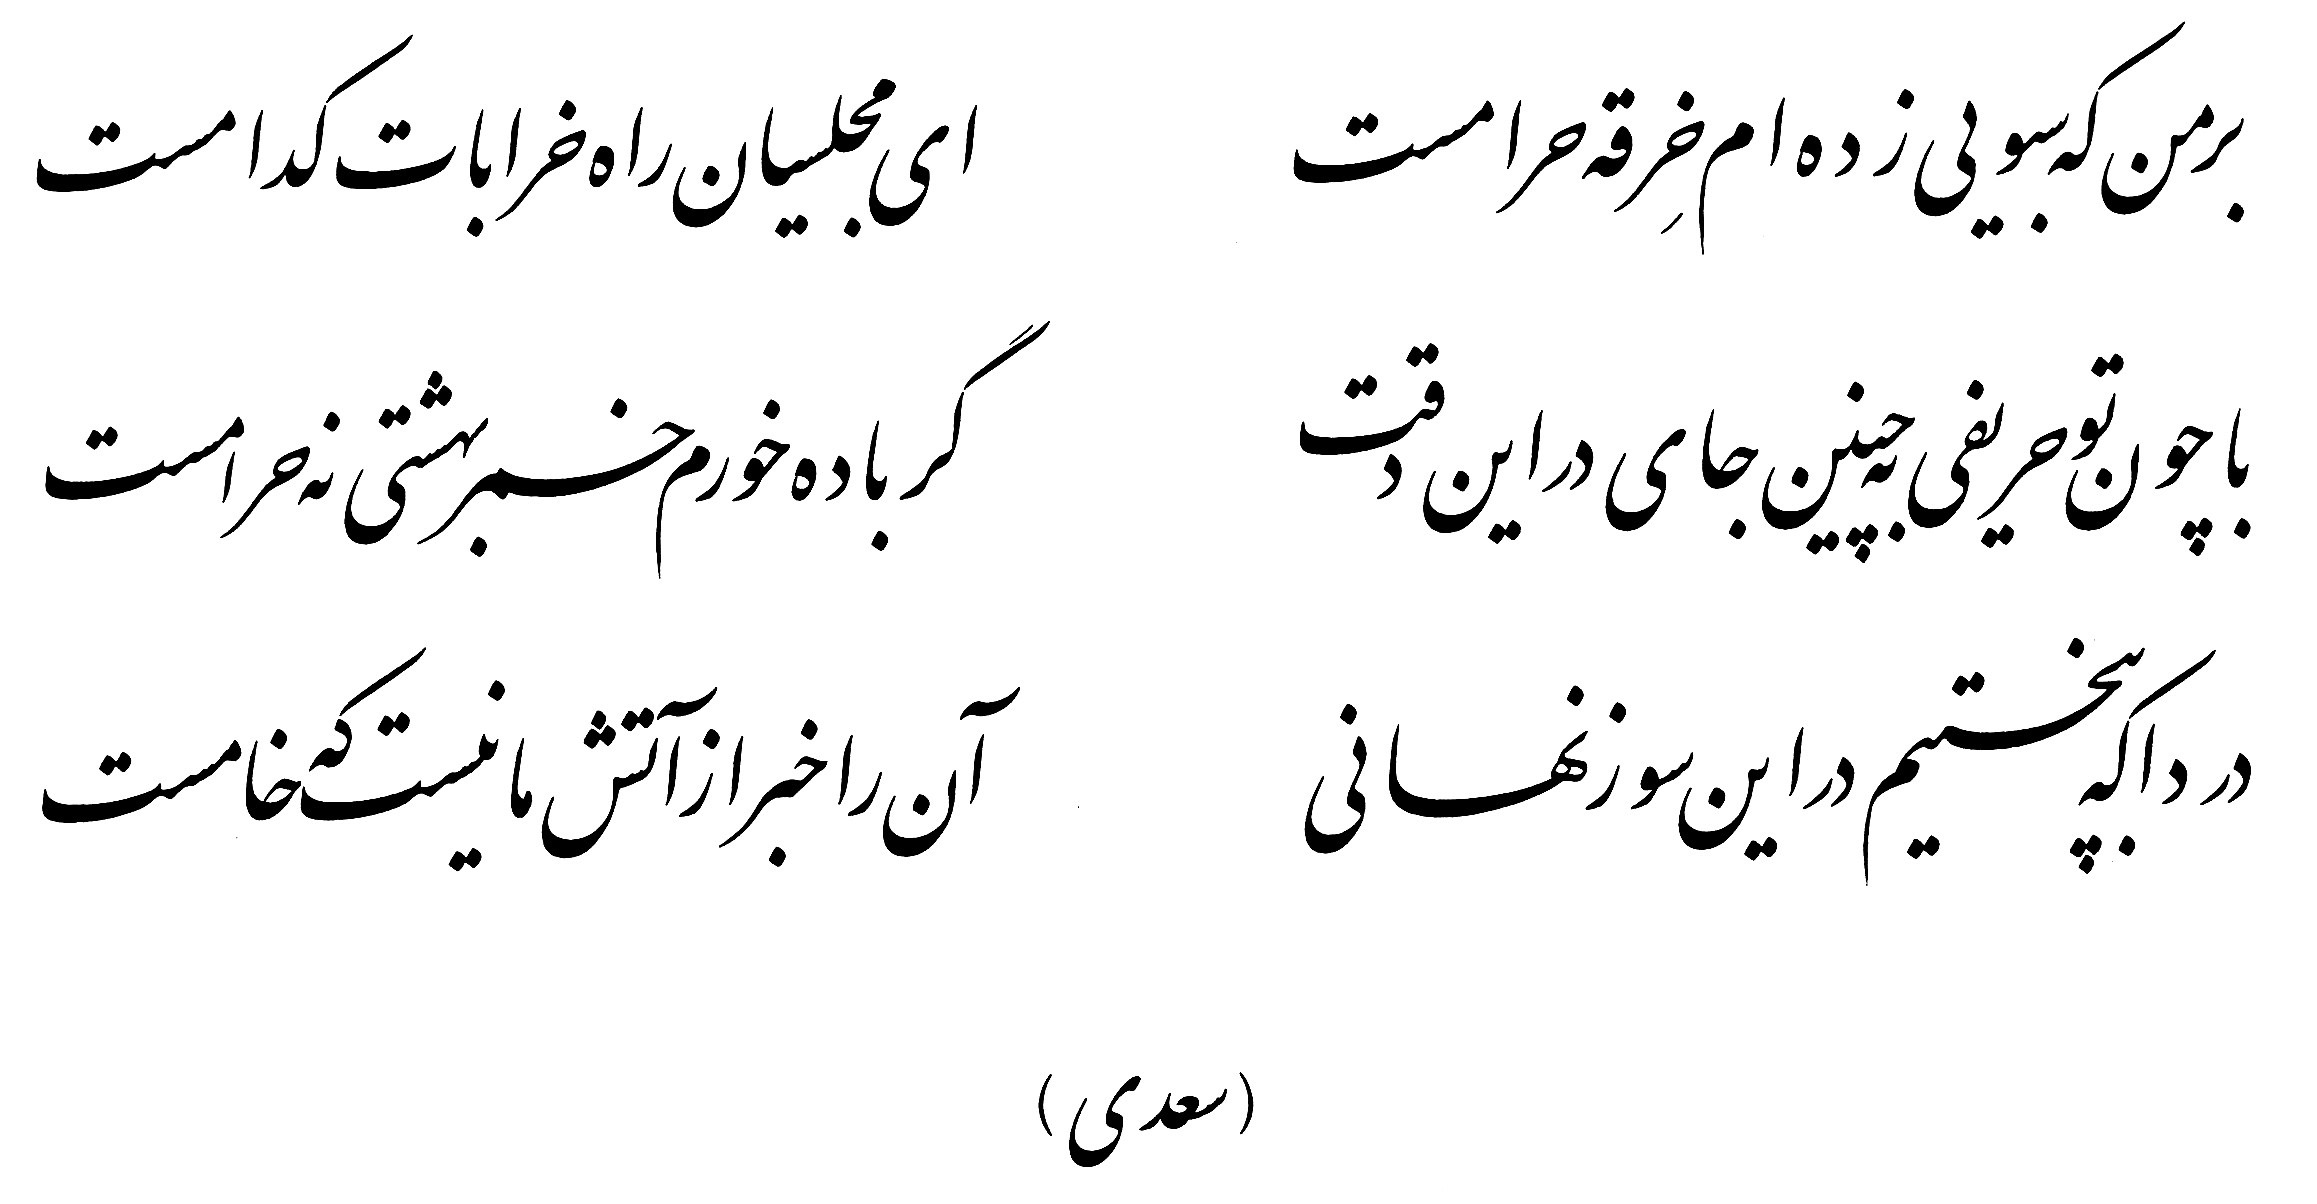 بر من که سبویی زده ام خِرقه حرامست ای مجلسیان راه خرابات کدامست
با چون تو حریفی به چنین جای در این دقت گر باده خورم خمر بهشتی نه حرامست
دردا که بپختیم در این سوز نهانی آن را خبر از آتش ما نیست که خامست
(سعدی)